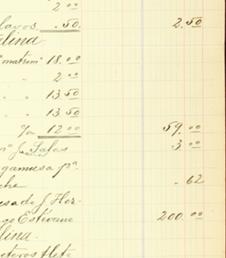 2 00
lavos .50. 2.50
elina
"matrim" 18.00
" " 2 00
" " 13 50
" " 13 50
12 00 59.00
J. Salas 3 00
gamusa pa.
che .62
esa de J. Flor-
go Estevane 200.00
lina.